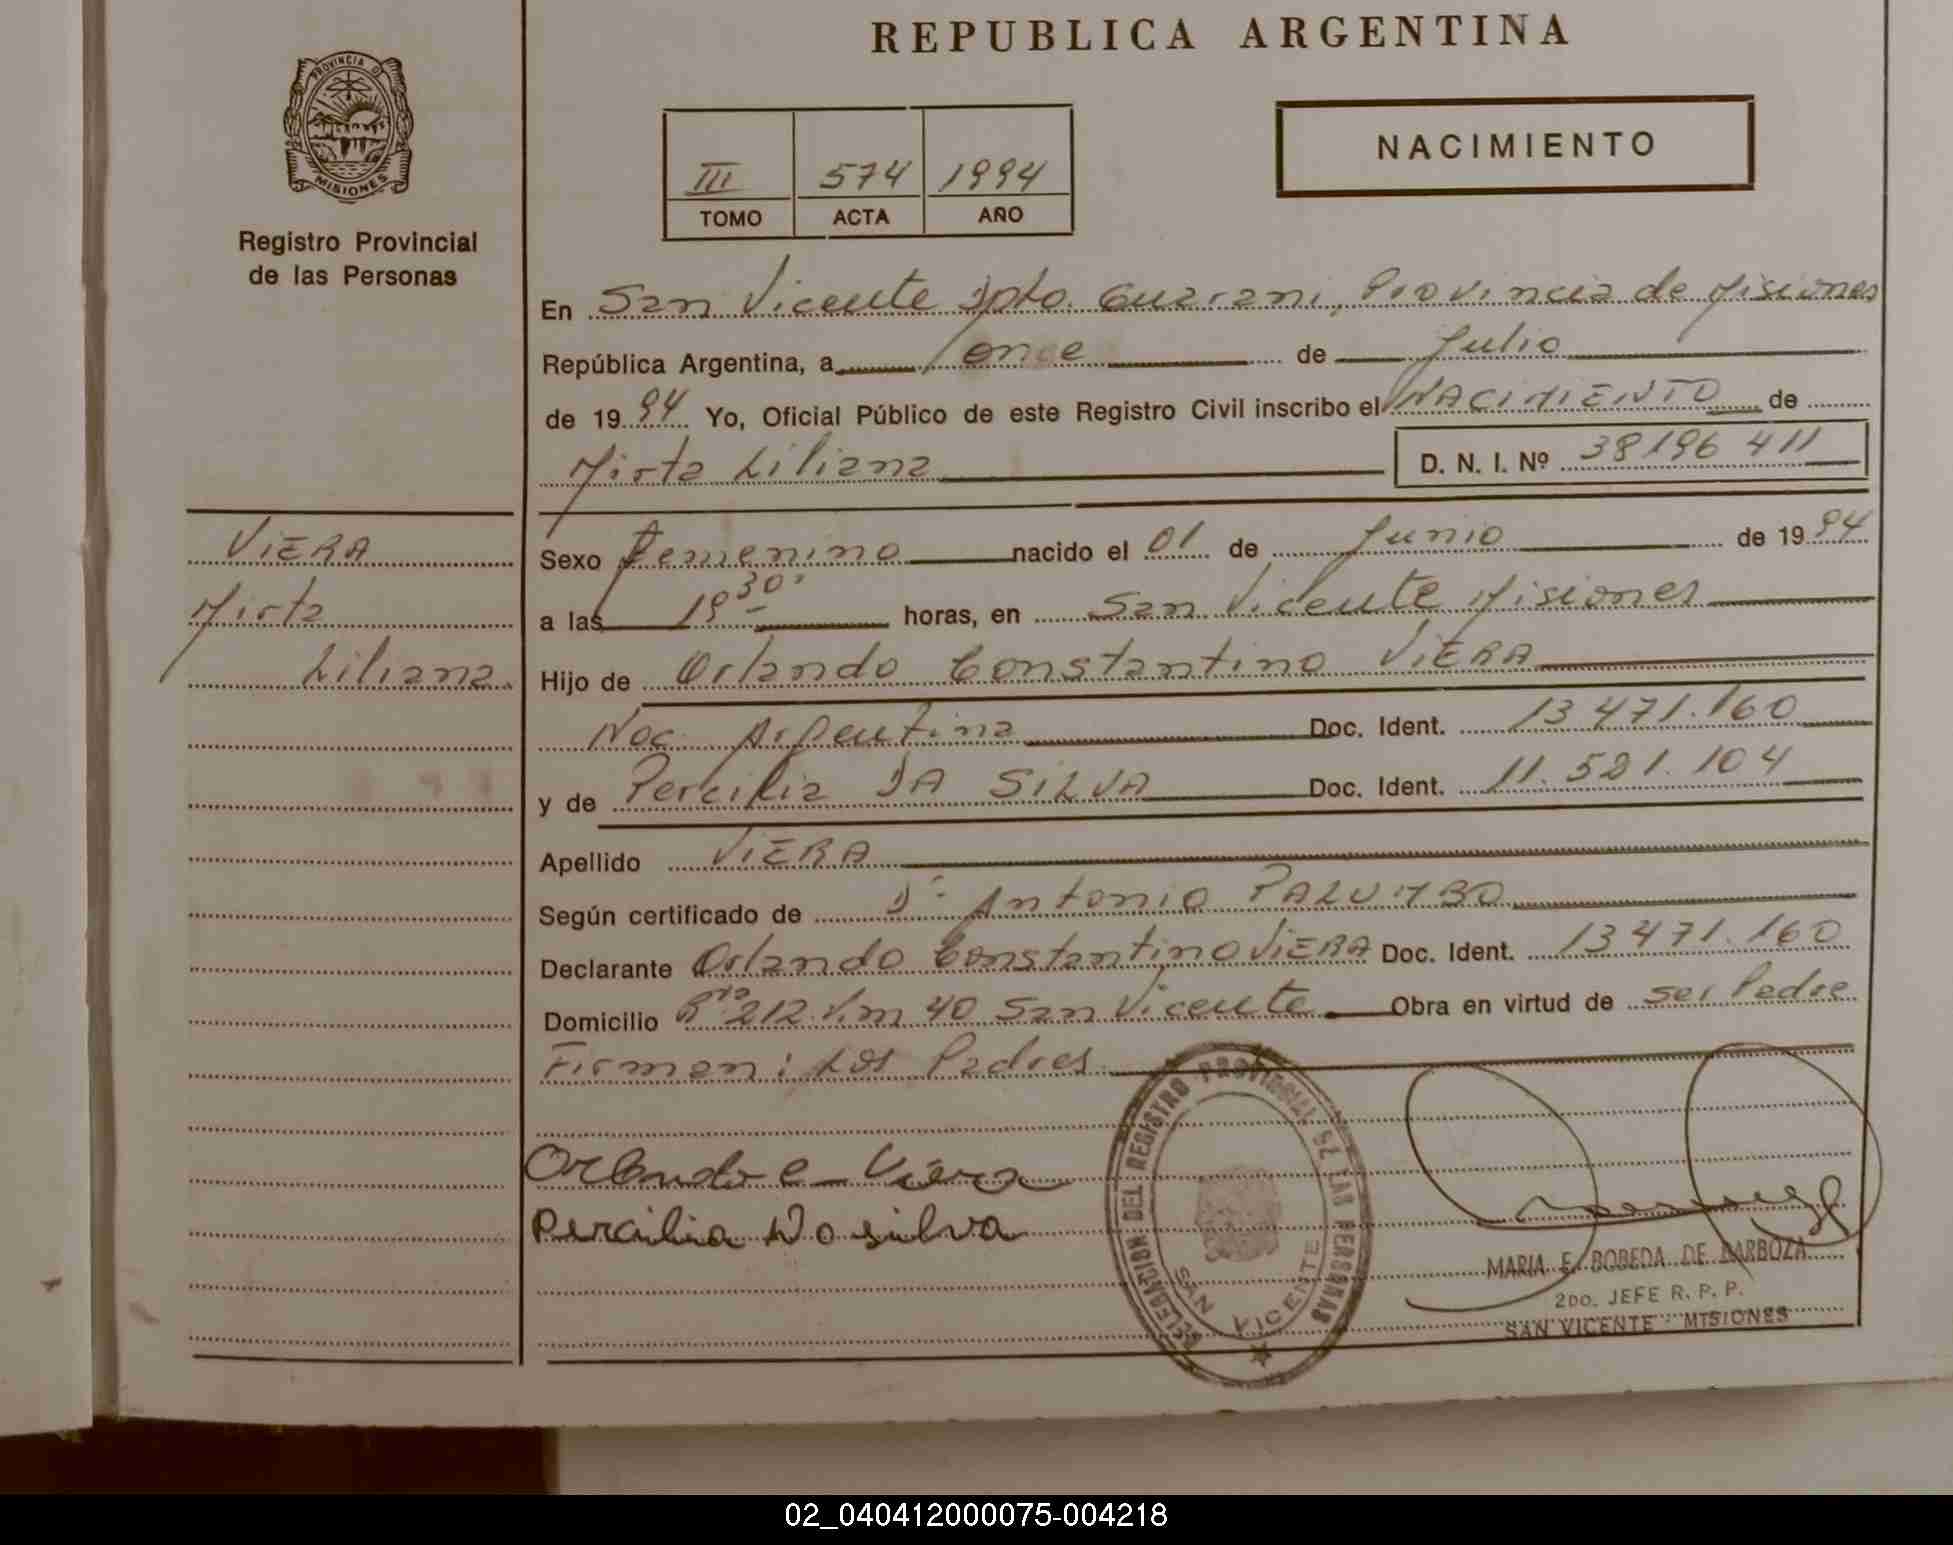 REPUBLICA ARGENTINA
PROVINCIA DE
MISIONES
Registro Provincial
de las Personas
III 574 1994
TOMO ACTA AÑO
NACIMIENTO
En San Vicente Dpto. Guarani, Provincia de Misiones
República Argentina, a once de Julio
de 1994 Yo, Oficial Público de este Registro Civil inscribo el NACIMIENTO de
Mirta Liliana D. N. I. Nº 38196 411
VIERA
Mirta
Liliana
Sexo Femenino nacido el 01 de Junio de 1994
a las 19 30' horas, en San Vicente Misiones
Hijo de Orlando Constantino VIERA
Nac. Argentina Doc. Ident. 13 471.160
y de Percilia DA SILVA Doc. Ident. 11.521.104
Apellido VIERA
Según certificado de Dr. Antonio PALUMBO
Declarante Orlando Constantino VIERA Doc. Ident. 13 471.160
Domicilio Rta 212 Km 40 San Vicente Obra en virtud de ser Padre
Firman: Los Padres
Orlando C Viera
Percilia Da silva
DELEGACION DEL REGISTRO PROVINCIAL DE LAS PERSONAS
SAN VICENTE
MARIA E. BOBEDA DE BARBOZA
2DO. JEFE R. P. P.
SAN VICENTE - MISIONES
02_040412000075-004218